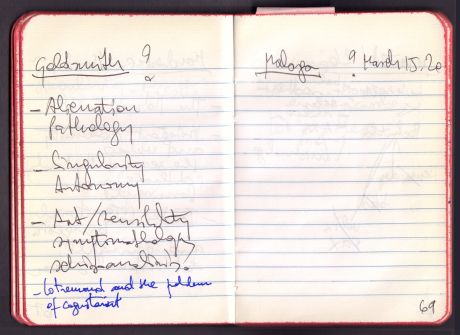 Goldsmith ?
- Alienation
Pathology
- Singularity
Autonomy
- Art/sensibility
symptomathology
schizoanalisis.
- and the problem
of
Malaga ? March 15. 20
69